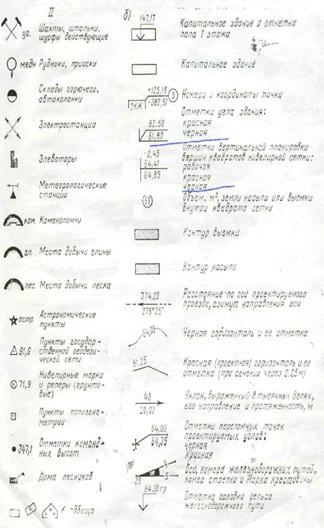 II
уг. Шахты, штольни,
шурфы действующие
медн Рудники, прииски
Склады горючего,
автоколонки
Электростанции
Элеваторы
Метеорологические
станции
кам. Каменоломни
гл. Места добычи глины
пес. Места добычи песка
астр Астрономические
пункты
91,6 Пункты государ-
ственной геодези-
ческой сети
71,9 Нивелирные марки
и реперы (грунто-
вые)
Пункты полигоно-
метрии
347,1 Отметки команд-
ных высот
Дома лесников
б)
147,17 Капитальное здание и отметка
пола 1 этажа
Капитальное здание
+125,18
-387,51
5 Номера и координаты точки
Отметки угла здания:
62.50 красная
61.80 черная
Отметки вертикальной планировки
вершин квадратов нивелирной сетки:
0.45 рабочая
64.41 красная
64,85 черная
Объем, м³, земли насыпи или выемки
внутри квадрата сетки
Контур выемки
Контур насыпи
374,00 Расстояние по оси проектируемого
проезда, азимут направления оси
64,00 Черная горизонталь и ее отметка
61.25 Красная (проектная) горизонталь и ее
отметка (при сечении через 0.25 м)
40 Уклон, выраженный в тысячных долях,
его направление и протяженность, м
Отметки переломных точек
проектируемых улиц:
64,00 черная
64,35 красная
Оси, номера железнодорожных путей,
номер стрелки и марка крестовины
64.30 гр Отметка головки рельса
железнодорожного пути